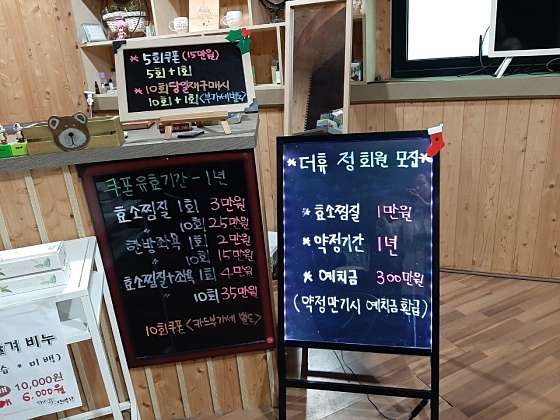 * 5회쿠폰 (15만원)
5회+1회
* 10회 당일재구매시
10회+1회 <부가세별도>
쿠폰유효기간 - 1년
효소찜질 1회 3만원
〃 10회 25만원
한방좌욕 1회 2만원
〃 10회 15만원
효소찜질+좌욕 1회 4만원
〃 10회 35만원
10회쿠폰 <카드부가세 별도>
* 더휴 정회원 모집 *
* 효소찜질 1만원
* 약정기간 1년
* 예치금 300만원
(약정만기시 예치금 환급)
비누
* 미백)
10,000원
6,000원